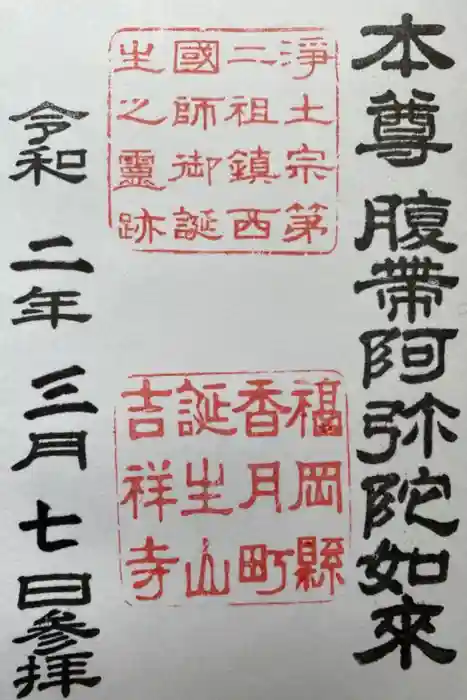 本尊 腹帶阿弥陀如來
淨土宗第
二祖鎮西
國師御誕
生之靈跡
福岡縣
香月町
誕生山
吉祥寺
令和 二年 三月 七日參拝